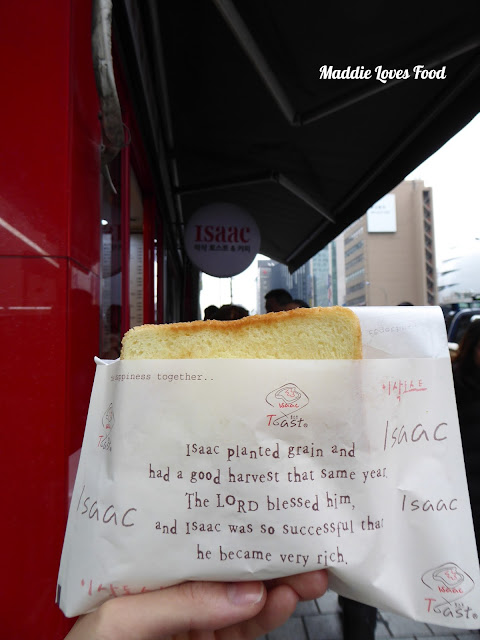 Maddie Loves Food
ISaac
이삭 토스트 & 커피
happiness together..
Isaac
Toast
Isaac planted grain and
had a good harvest that same year.
The LORD blessed him,
and Isaac was so successful that
he became very rich.
Isaac
Isaac
Isaac
Toast